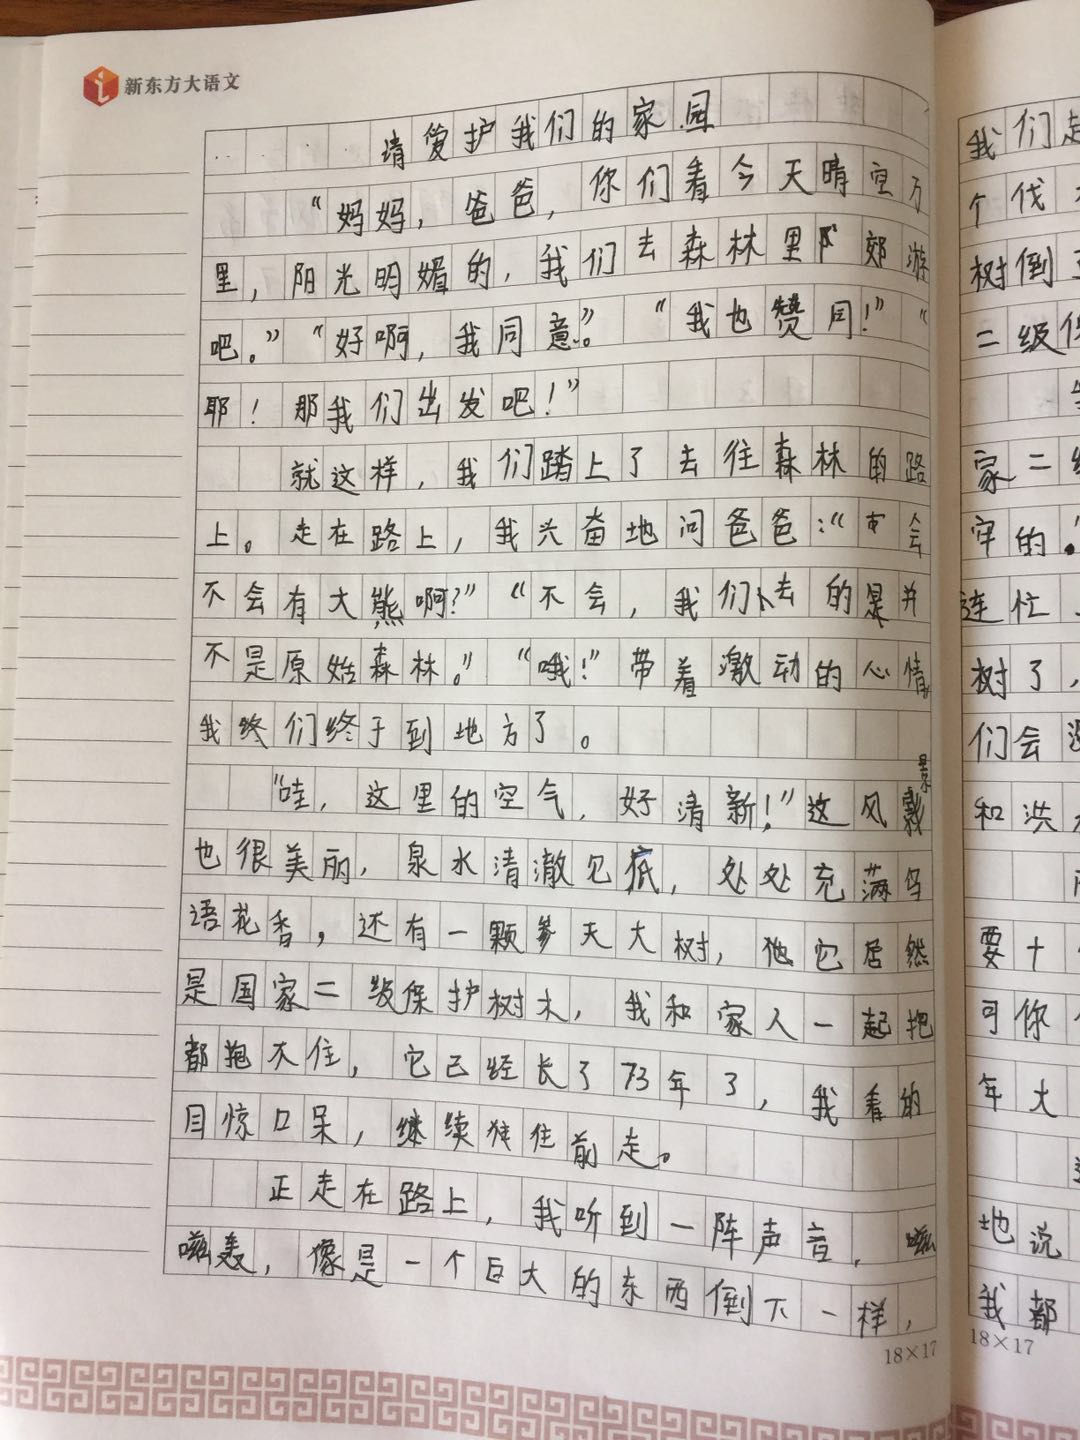 新东方大语文
请爱护我们的家园
“妈妈，爸爸，你们看今天晴空万
里，阳光明媚的，我们去森林里郊游
吧。”“好啊，我同意。”“我也赞同！”“
耶！那我们出发吧！”
就这样，我们踏上了去往森林的路
上。走在路上，我兴奋地问爸爸：“会
不会有大熊啊？”“不会，我们去的是并
不是原始森林。”“哦！”带着激动的心情，
我终们终于到地方了。
“哇，这里的空气，好清新！”这风景
也很美丽，泉水清澈见底，处处充满鸟
语花香，还有一颗参天大树，他它居然
是国家二级保护树木，我和家人一起抱
都抱不住，它已经长了73年了，我看的
目惊口呆，继续往前走。
正走在路上，我听到一阵声音，
嗞轰，像是一个巨大的东西倒下一样，
18×17
我们
个伐
树倒
二级保
家二级
牢的。
连忙
树了，
们会
和洪
要十
可你
年大
地说
我都
18×17